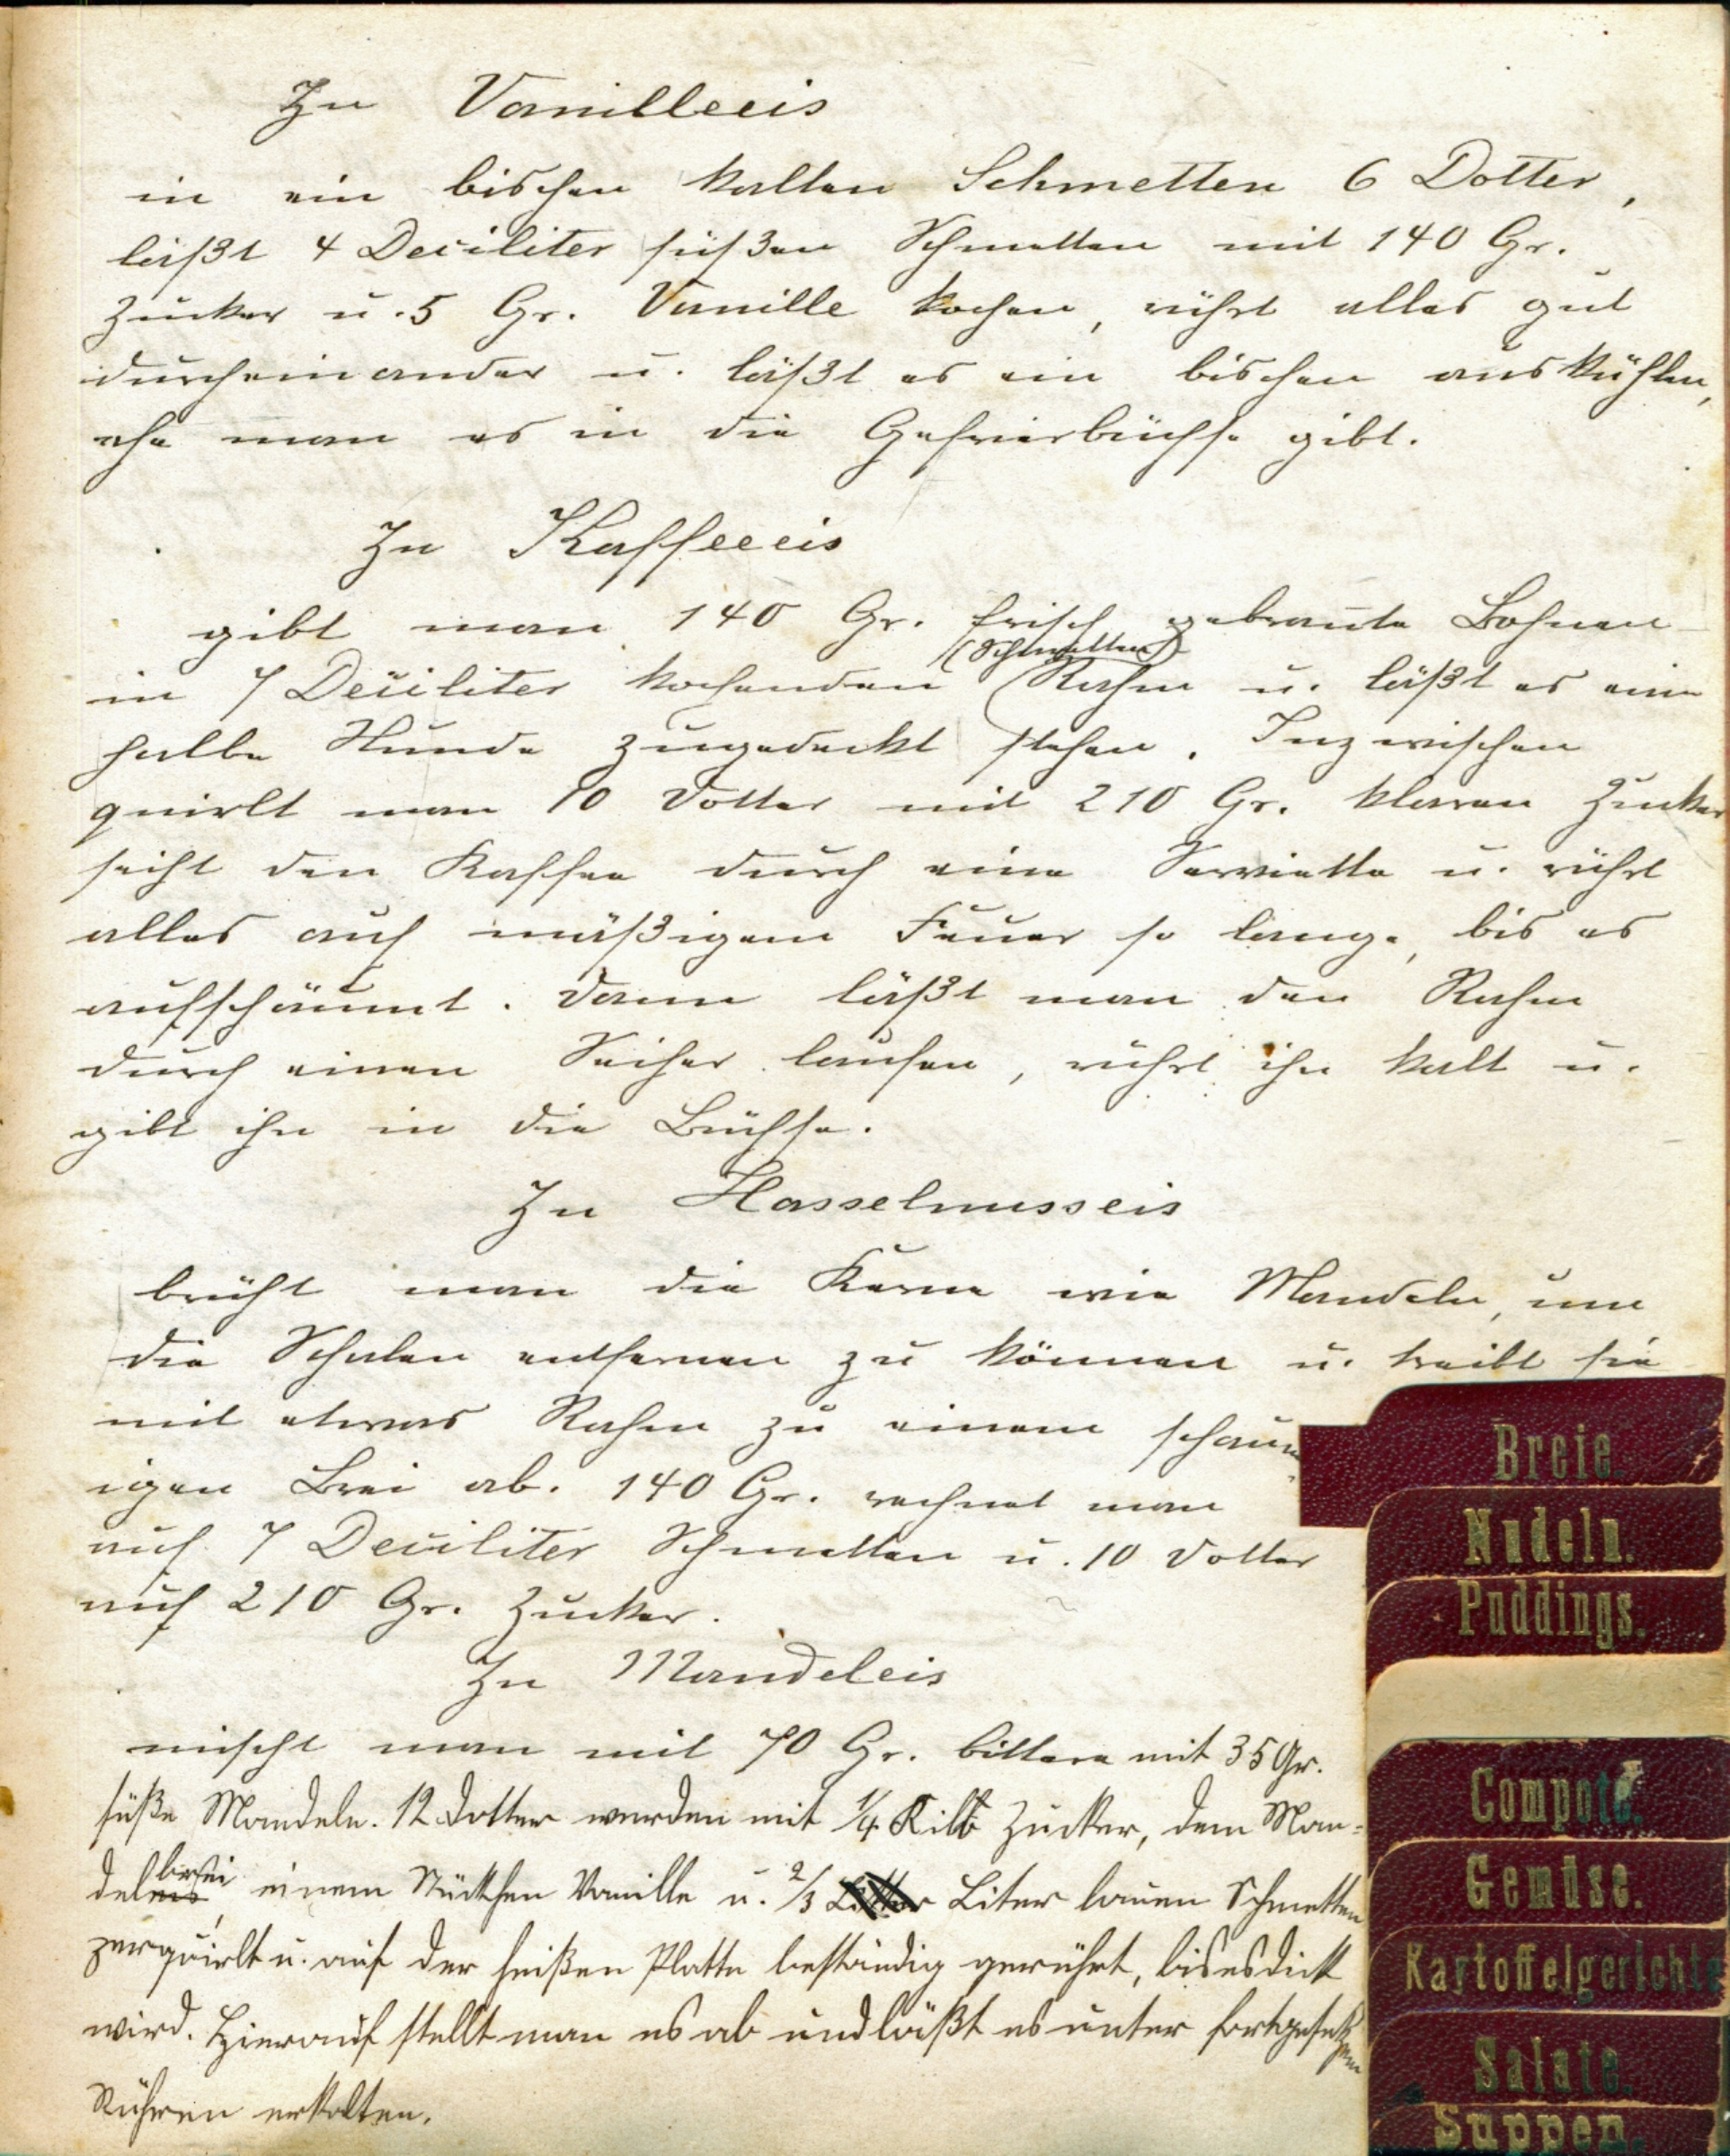 Zu Vanilleeis
in ein bischen kalten Schmetten 6 Dotter,
läßt 4 Deciliter süßen Schmetten mit 140 Gr.
Zucker u. 5 Gr. Vanille kochen, rührt alles gut
durcheinander u. läßt es ein bischen auskühlen,
ehe man es in die Gefrierbüchse gibt.
Zu Kaffeeeis
gibt man 140 Gr. frisch gebrannte Bohnen
(Schmetten)
in 7 Deciliter kochenden Rahm u. läßt es eine
halbe Stunde zugedeckt stehen. Inzwischen
quirlt man 10 Dotter mit 210 Gr. klaren Zucker
seiht den Kaffee durch eine Serviette u. rührt
alles auf mäßigem Feuer so lange, bis es
aufschäumt. Dann läßt man den Rahm
durch einen Seiher laufen, rührt ihn kalt u.
gibt ihn in die Büchse.
Zu Hasselnusseis
brüht man die Kerne wie Mandeln, um
die Schalen entfernen zu können u. treibt sie
mit etwas Rahm zu einem schaum-
igen Brei ab. 140 Gr. rechnet man
auf 7 Deciliter Schmetten u. 10 Dotter
auf 210 Gr. Zucker.
Zu Mandeleis
mischt man mit 70 Gr. bittere mit 35 Gr.
süße Mandeln. 12 Dotter werden mit 1/4 Kilo Zucker, dem Man-
delbrei, einem Stückchen Vanille u. 2/3 Liter lauen Schmetten
zerquirlt u. auf der heißen Platte beständig gerührt, bis es dick
wird. Hierauf stellt man es ab und läßt es unter fortgesetztem
Rühren erkalten.
Breie.
Nudeln.
Puddings.
Compote.
Gemüse.
Kartoffelgerichte
Salate.
Suppen.